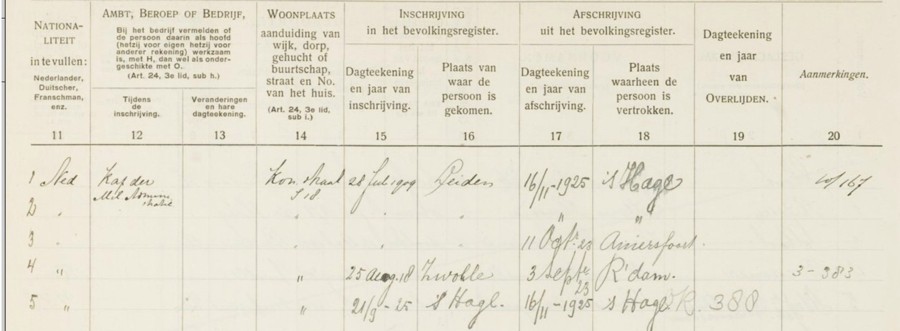 NATIONALITEIT
in te vullen:
Nederlander,
Duitscher,
Franschman,
enz.
11
AMBT, BEROEP OF BEDRIJF,
Bij het bedrijf vermelden of
de persoon daarin als hoofd
(hetzij voor eigen hetzij voor
anderer rekening) werkzaam
is, met H, dan wel als ondergeschikte met O.
(Art. 24, 3e lid, sub h.)
Tijdens
de
inschrijving.
12
Veranderingen
en hare
dagteekening.
13
WOONPLAATS
aanduiding van
wijk, dorp,
gehucht of
buurtschap,
straat en No.
van het huis.
(Art. 24, 3e lid,
sub i.)
14
INSCHRIJVING
in het bevolkingsregister.
Dagteekening
en jaar van
inschrijving.
15
Plaats van
waar de
persoon is
gekomen.
16
AFSCHRIJVING
uit het bevolkingsregister.
Dagteekening
en jaar van
afschrijving.
17
Plaats
waarheen de
persoon is
vertrokken.
18
Dagteekening
en jaar
van
OVERLIJDEN.
19
Aanmerkingen.
20
1 Ned Kap der Kon. straat 28 Jul 1909 Leiden 16/11-1925 's Hage /167
Mil Admini
stratie 518
2 " " " " " "
3 " " " " 11 Oct Amersfoort.
4 " " 25 Aug. 18 Zwolle 3 Sept R'dam. 3-383
23
5 " " 21/9-25 's Hage. 16/11-1925 's Hage 388